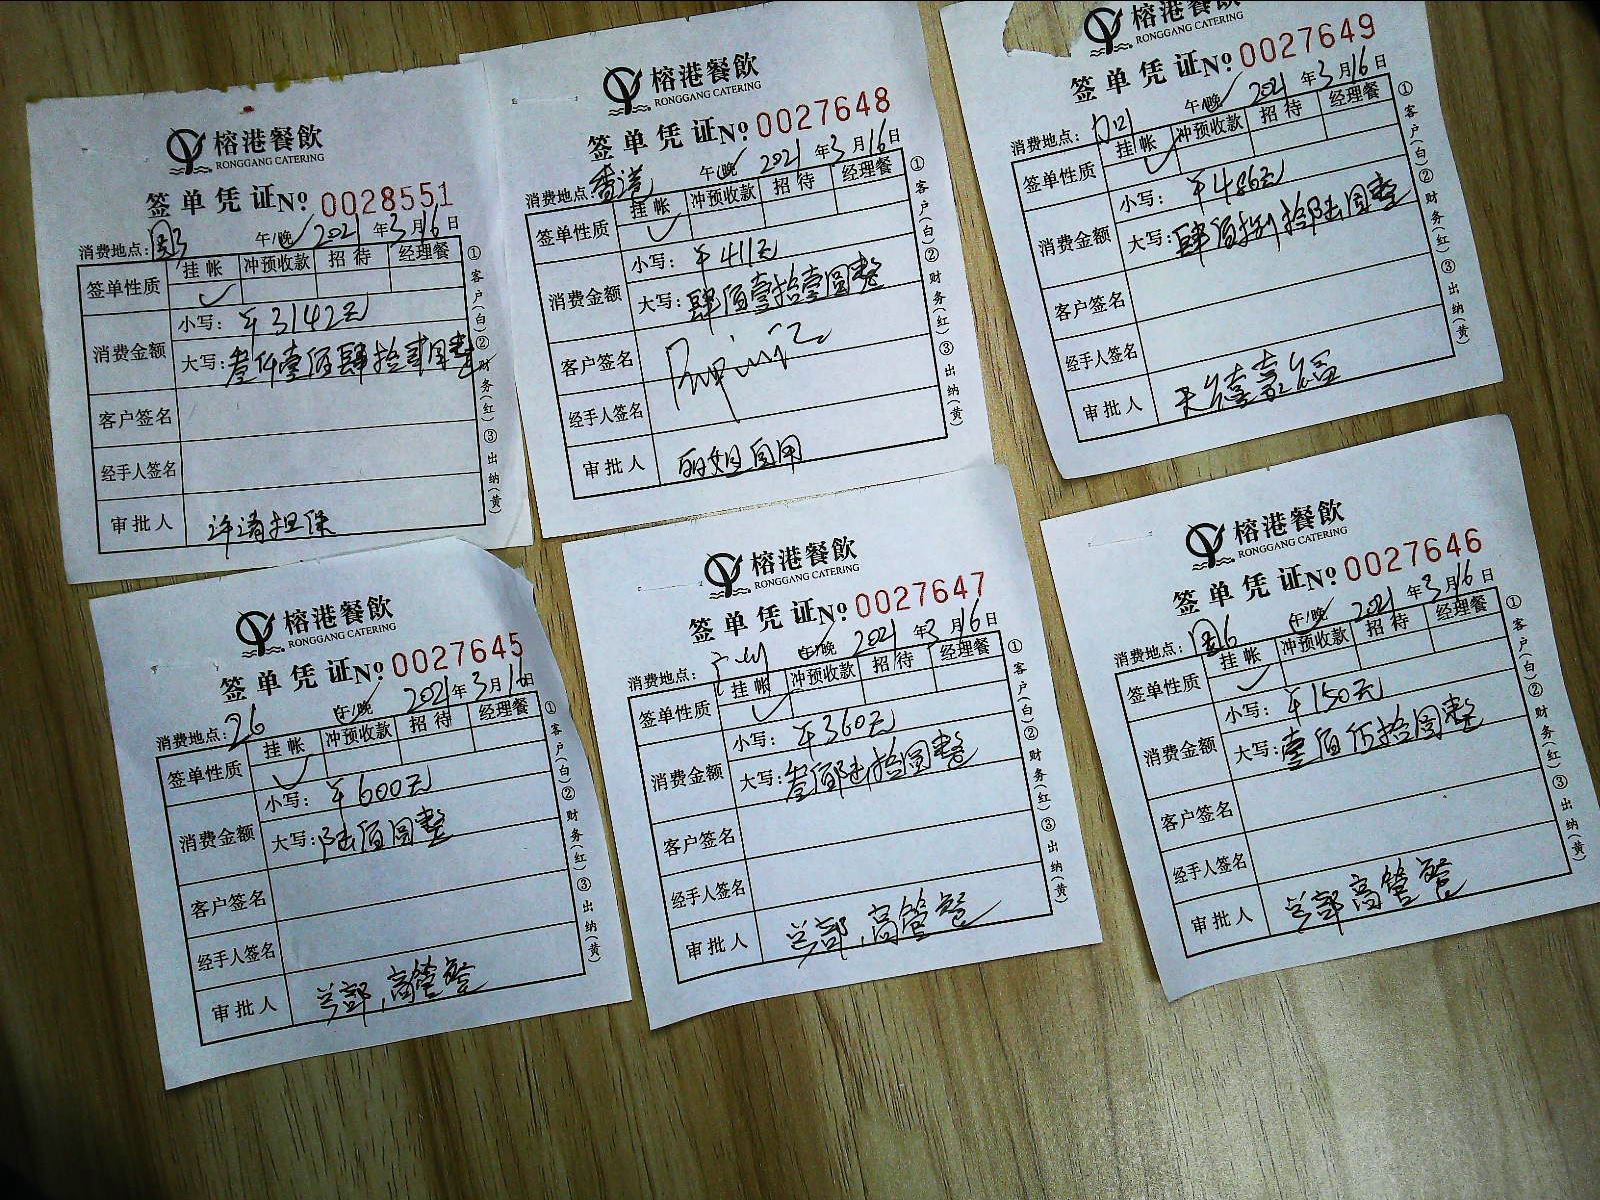 榕港餐飲
RONGGANG CATERING
签单凭证 No 0028551
消费地点： 午/晚 2021年3月16日
签单性质 挂帐 冲预收款 招待 经理餐
✓
消费金额 小写：￥3142元
大写：叁仟壹佰肆拾贰圆整
客户签名
经手人签名
审批人 许清担保
①客户(白)②财务(红)③出纳(黄)
榕港餐飲
RONGGANG CATERING
签单凭证 No 0027648
消费地点：香港 午/晚 2021年3月16日
签单性质 挂帐 冲预收款 招待 经理餐
✓
消费金额 小写：￥411元
大写：肆佰壹拾壹圆整
客户签名
经手人签名
审批人 丽姐自用
①客户(白)②财务(红)③出纳(黄)
榕港餐飲
RONGGANG CATERING
签单凭证 No 0027649
消费地点： 午/晚 2021年3月16日
签单性质 挂帐 冲预收款 招待 经理餐
✓
消费金额 小写：￥486元
大写：肆佰捌拾陆圆整
客户签名
经手人签名
审批人
①客户(白)②财务(红)③出纳(黄)
榕港餐飲
RONGGANG CATERING
签单凭证 No 0027645
消费地点：26 午/晚 2021年3月16日
签单性质 挂帐 冲预收款 招待 经理餐
✓
消费金额 小写：￥600元
大写：陆佰圆整
客户签名
经手人签名
审批人 总部,高管餐
①客户(白)②财务(红)③出纳(黄)
榕港餐飲
RONGGANG CATERING
签单凭证 No 0027647
消费地点：广州 午/晚 2021年3月16日
签单性质 挂帐 冲预收款 招待 经理餐
✓
消费金额 小写：￥360元
大写：叁佰陆拾圆整
客户签名
经手人签名
审批人 总部,高管餐
①客户(白)②财务(红)③出纳(黄)
榕港餐飲
RONGGANG CATERING
签单凭证 No 0027646
消费地点： 午/晚 2021年3月16日
签单性质 挂帐 冲预收款 招待 经理餐
✓
消费金额 小写：￥150元
大写：壹佰伍拾圆整
客户签名
经手人签名
审批人 总部高管餐
①客户(白)②财务(红)③出纳(黄)